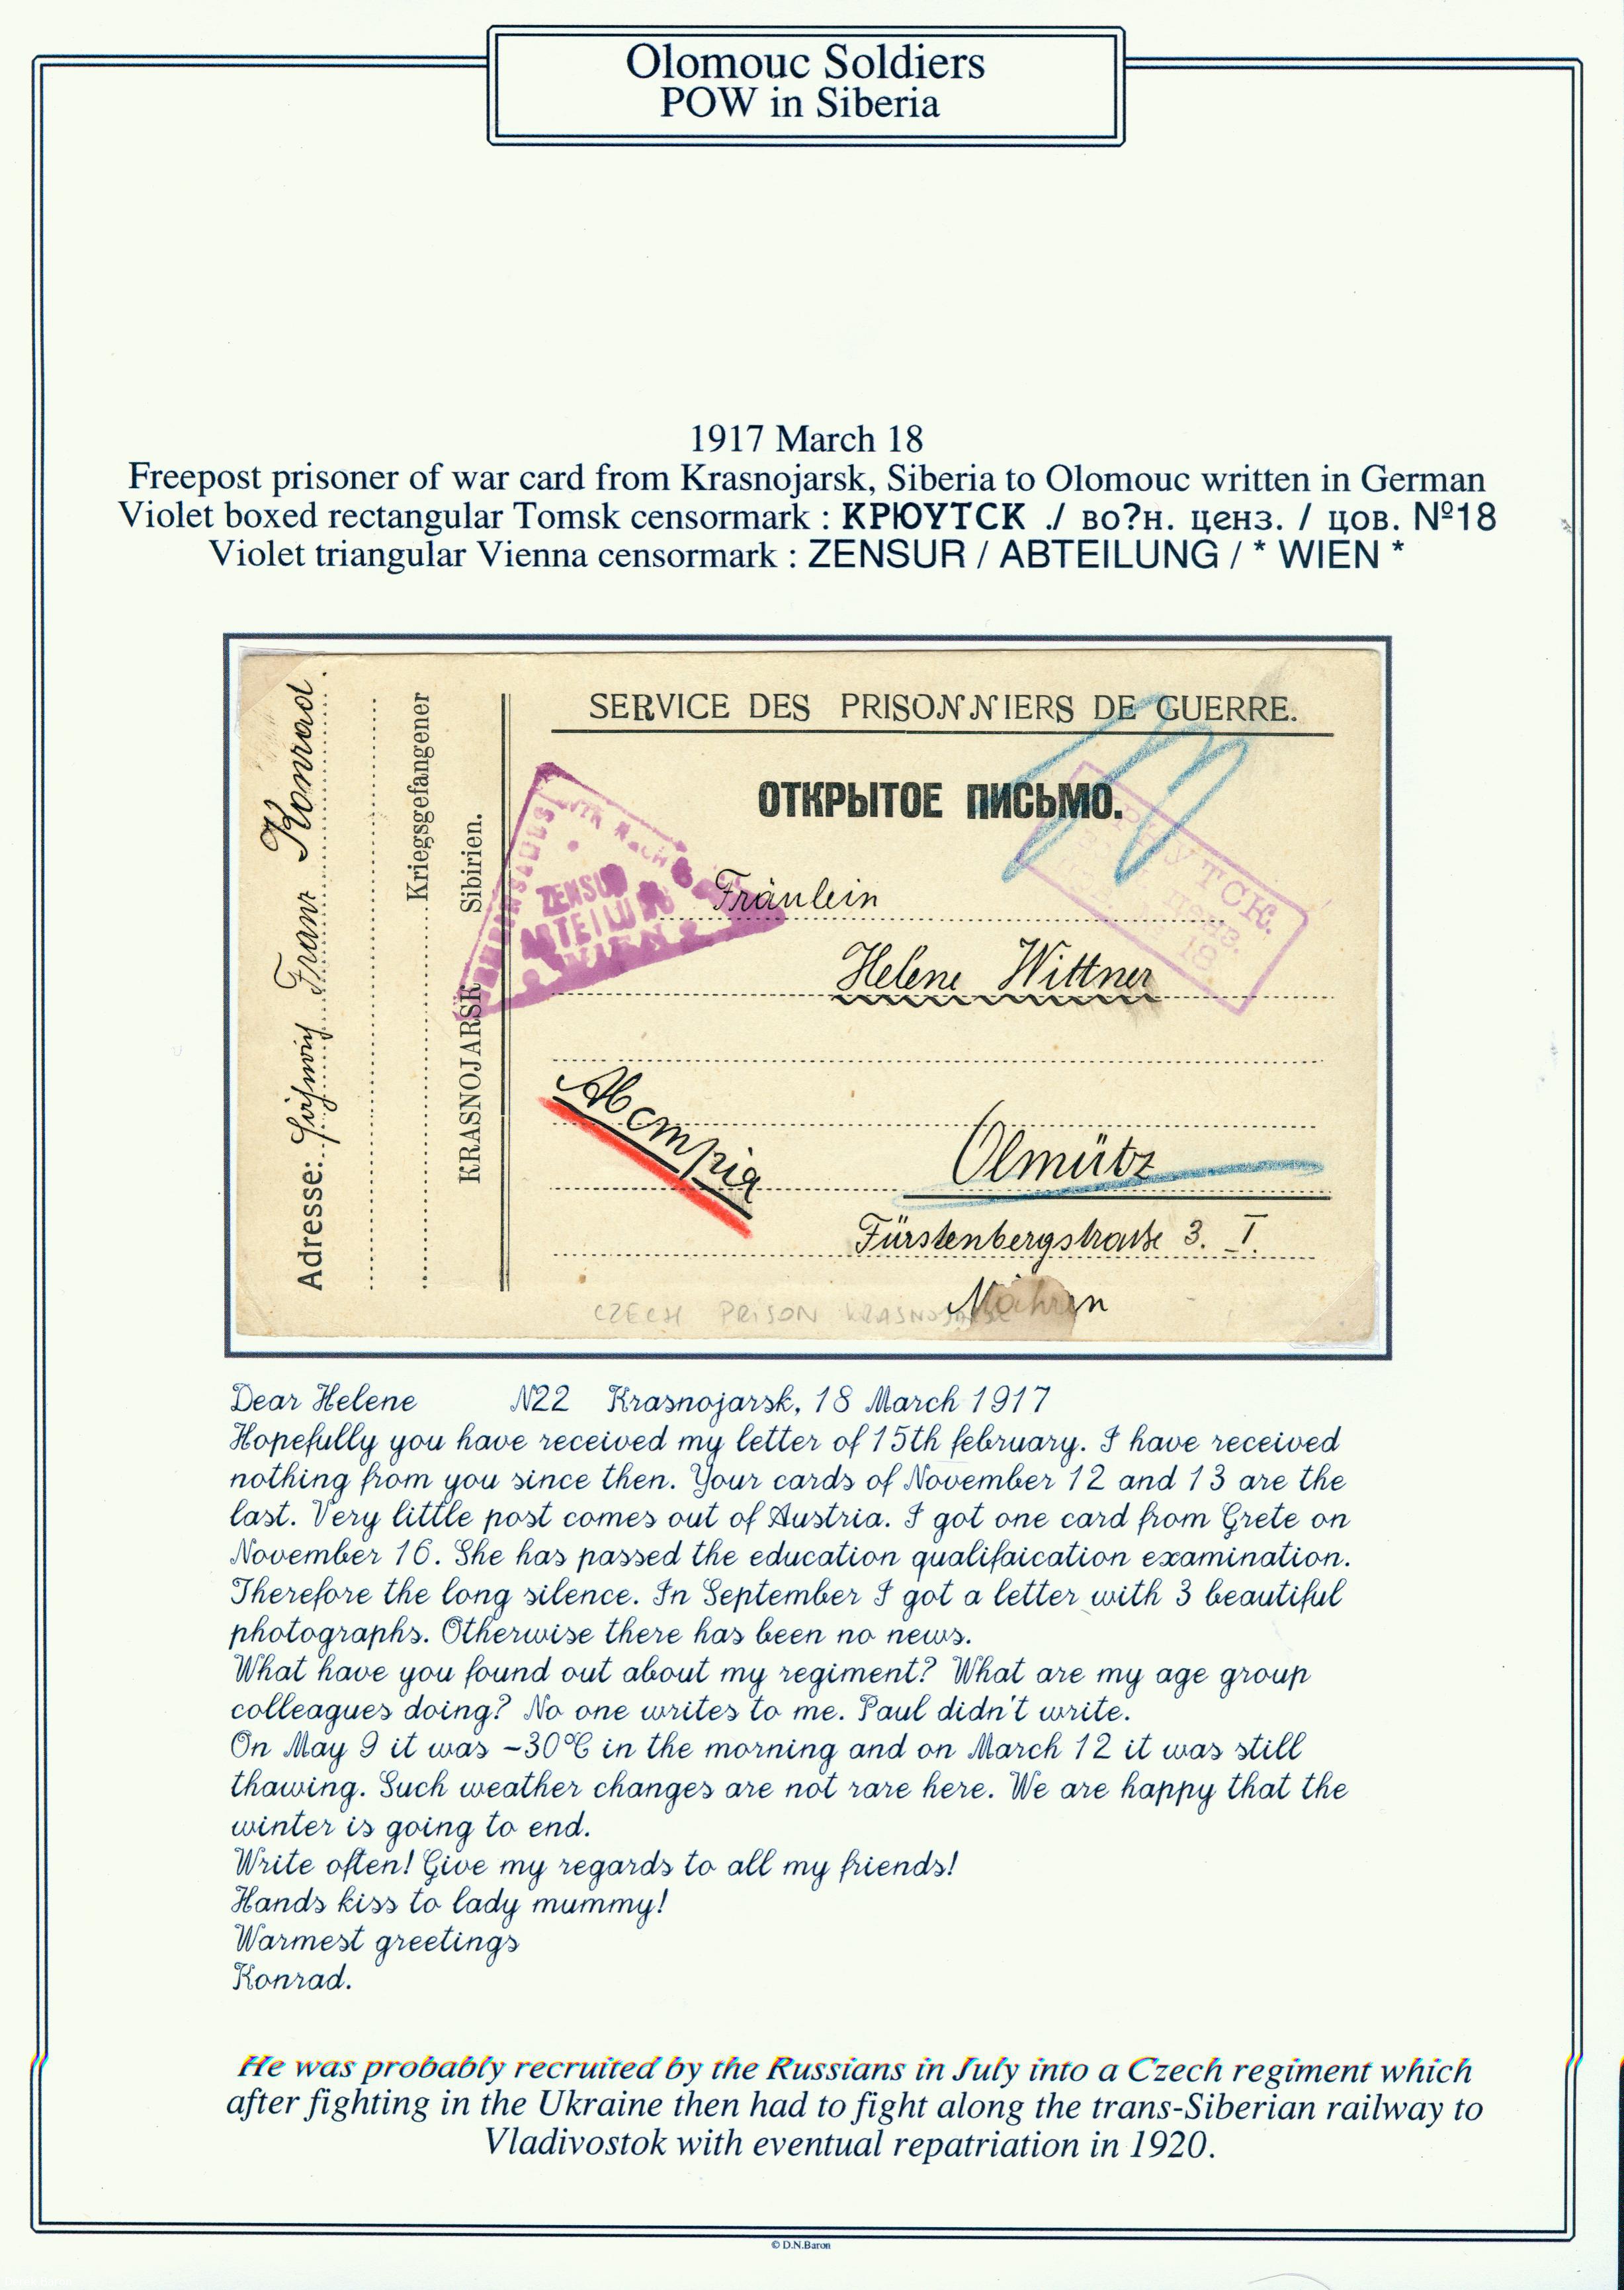 Olomouc Soldiers
POW in Siberia
1917 March 18
Freepost prisoner of war card from Krasnojarsk, Siberia to Olomouc written in German
Violet boxed rectangular Tomsk censormark : КРЮYТСК ./ во?н. ценз. / цов. №18
Violet triangular Vienna censormark : ZENSUR / ABTEILUNG / * WIEN *
Adresse: Franz Konrad.
Kriegsgefangener
KRASNOJARSK Sibirien.
SERVICE DES PRISONNIERS DE GUERRE.
ОТКРЫТОЕ ПИСЬМО.
ZENSUR
ABTEILUNG
WIEN
18
Fräulein
Helene Wittner
Австрія
Olmütz
Fürstenbergstraße 3. I.
Mähren
CZECH PRISON KRASNOJARSK
Dear Helene N22 Krasnojarsk, 18 March 1917
Hopefully you have received my letter of 15th february. I have received
nothing from you since then. Your cards of November 12 and 13 are the
last. Very little post comes out of Austria. I got one card from Grete on
November 16. She has passed the education qualifaication examination.
Therefore the long silence. In September I got a letter with 3 beautiful
photographs. Otherwise there has been no news.
What have you found out about my regiment? What are my age group
colleagues doing? No one writes to me. Paul didn't write.
On May 9 it was -30°C in the morning and on March 12 it was still
thawing. Such weather changes are not rare here. We are happy that the
winter is going to end.
Write often! Give my regards to all my friends!
Hands kiss to lady mummy!
Warmest greetings
Konrad.
He was probably recruited by the Russians in July into a Czech regiment which
after fighting in the Ukraine then had to fight along the trans-Siberian railway to
Vladivostok with eventual repatriation in 1920.
© D.N.Baron